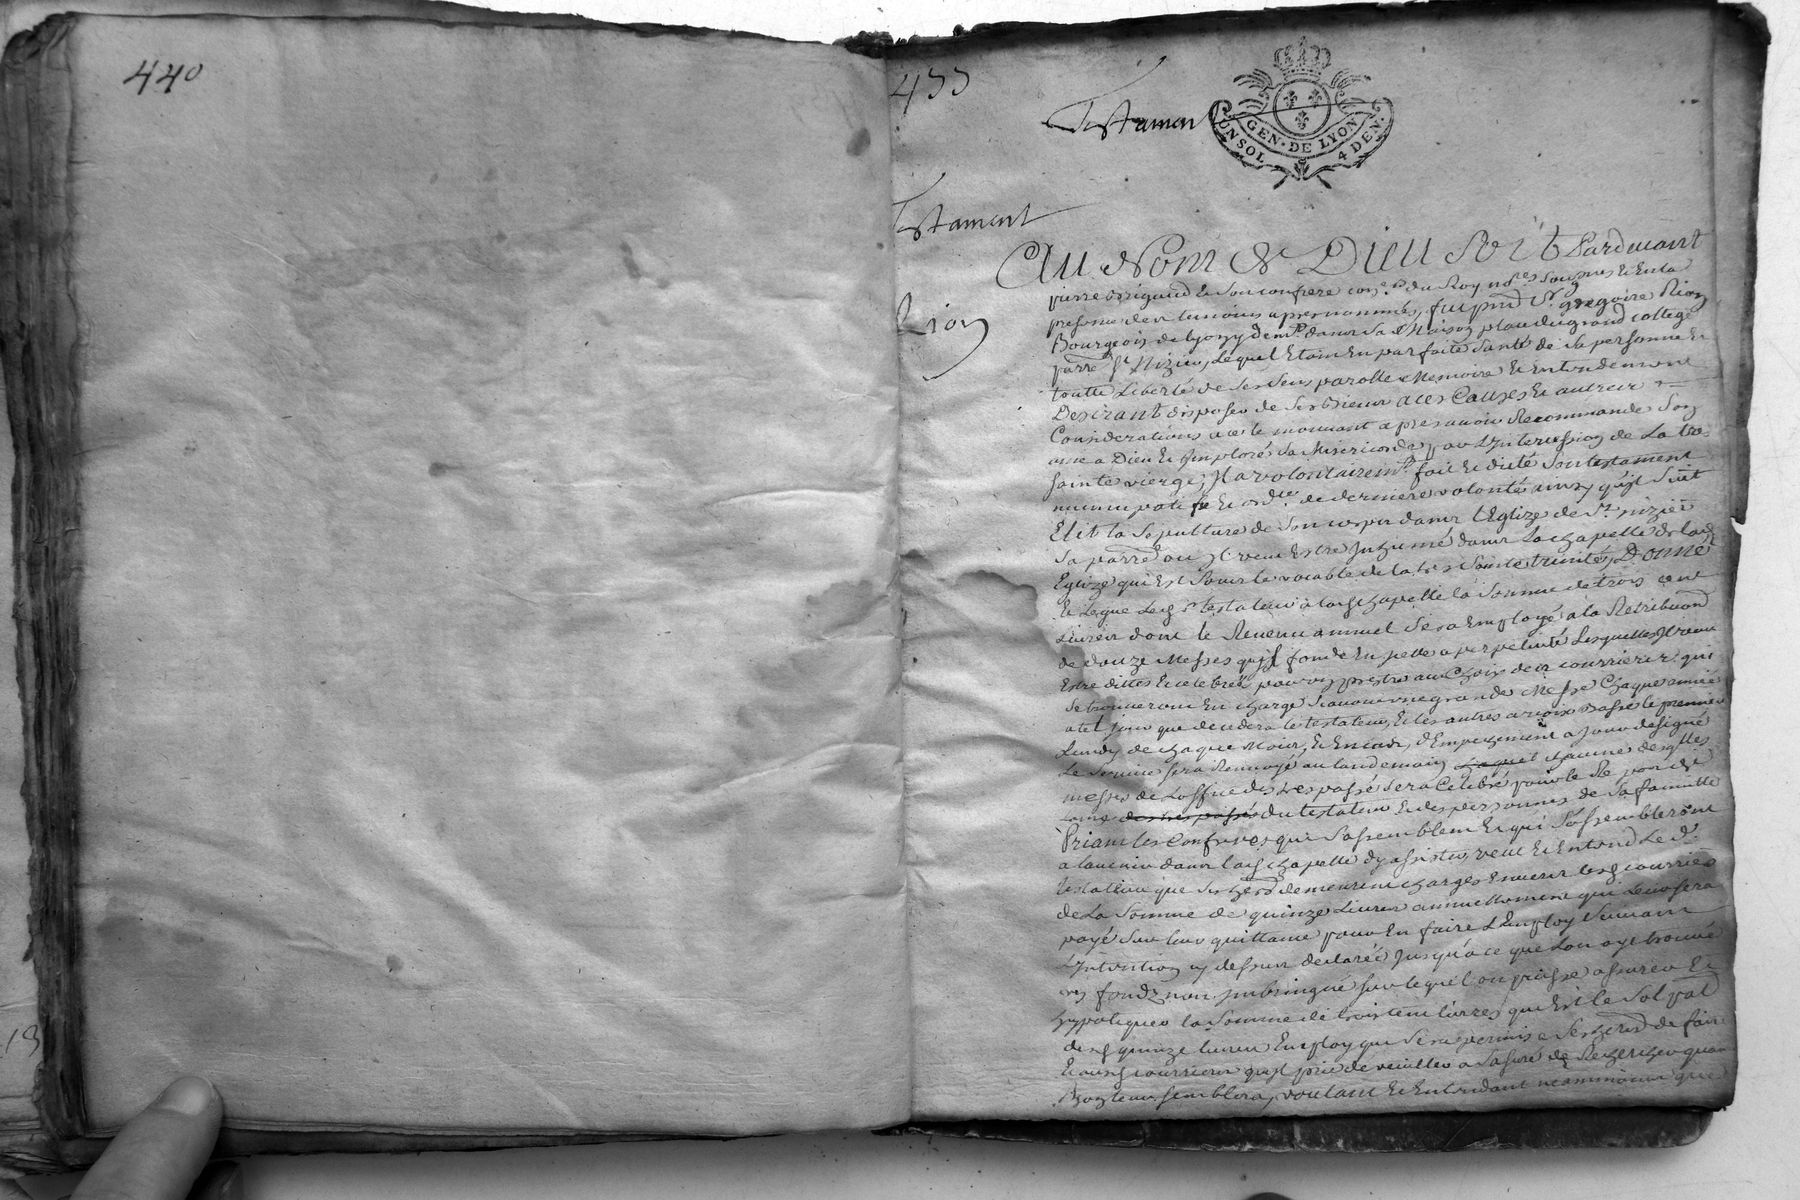 440
433
Testament
GEN. DE LYON
UN SOL 4 DEN.
Testament
Rion
Au Nom de Dieu soit Pardevant
pierre Brigaud & son confrere du Roy soussignes
presens St. gregoire Rion
Bourgeois de Lyon y demt. dans sa Maison place du grand college
parre St Nizier, Lequel Etant En parfaite santé de sa personne Et
toutte Liberté de ses sens parolle Memoire Et Entendement
Desirant disposer de ses Biens a ces Causes Et autres
Considerations a ce le mouvant apres avoir Recommandé son
ame a Dieu Et Implorés sa Misericorde par L'Intercession de La tres
sainte vierge, Il a volontairemt. fait Et dicté son testament
nuncupatif Et de derniere volonté ainsy qu'il suit
Elit la sepulture de son corps dans l'Eglize de St. nizier
sa parre ou Il veut Estre Inhumé dans La chapelle de lad
Eglize qui Est sous le vocable de la tres sainte trinité, Donne
Et Legue Led sr testateur a lad chapelle la somme de trois cent
Livres dont le Revenu annuel sera Employé a la Retribuon
de douze Messes qu'il fonde En jcelle a perpetuité Lesquelles Il veut
Estre dittes Et celebrés par un prestre au Choix des courriers qui
se trouveront En charge scavoir une grande Messe Chaque année
a tel jour que decedera le testateur, Et les autres a voix Basse le premier
Lundy de chaque Mois, Et En cas d'Empechement a jour designé
Le service sera Renvoyé au landemain Laquel chacune desqlles
messes de Loffice des trespassé sera Celebré pour le Repos de
Lame des trespassés du testateur Et des personnes de sa famille
Priant les Confreres qui s'assemblent Et qui s'assembleront
a lavenir dans lad chapelle d'y assister, veut Et Entend Led sr.
testateur que ses hers demeurent charges Envers lesd courriers
de La somme de quinze Livres annuellement qui Leur sera
payé sur leur quittance pour En faire L'Employ suivant
L'Intention cy dessus declarée Jusqu'a ce que Lon aye trouvé
un fondz non sur lequel on puisse assurer Et
hypotiquer la somme de trois cent livres qui Est le sol pal
desd quinze livres Employ qui sera permis a ses hers de faire
Et ausd courriers qu'il prie de veiller a sa sureté Rechercher quan
Bon leur semblera, voulant Et Entendant neammoins que